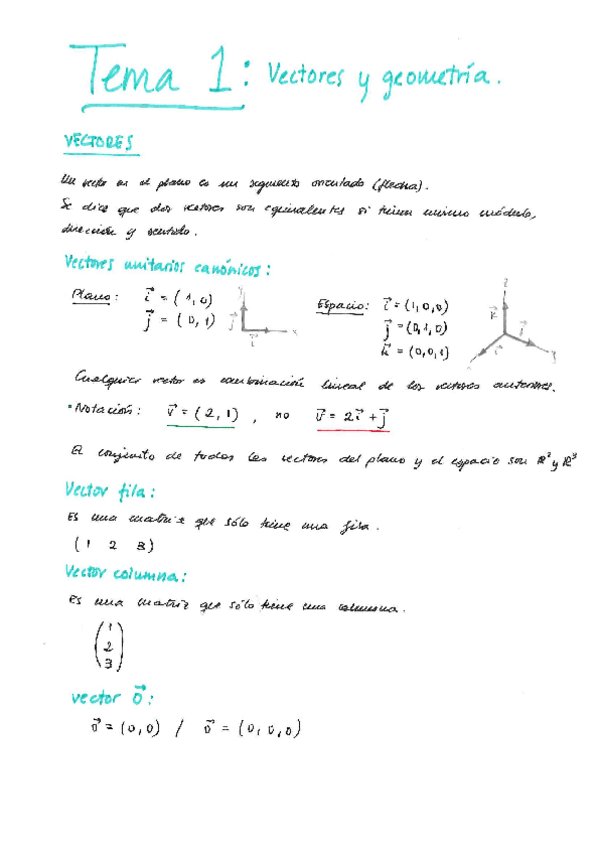 Tema 1: Vectores y geometría.
VECTORES
Un vector en el plano es un segmento orientado (flecha).
Se dice que dos vectores son equivalentes si tienen mismo módulo,
dirección y sentido.
Vectores unitarios canónicos:
Plano: i⃗ = (1,0)
j⃗ = (0,1)
y
j⃗
i⃗
x
Espacio: i⃗ = (1,0,0)
j⃗ = (0,1,0)
k⃗ = (0,0,1)
z
k⃗
j⃗
i⃗
y
x
Cualquier vector es combinación lineal de los vectores anteriores.
• Notación: v⃗ = (2,1), no v⃗ = 2i⃗ + j⃗
El conjunto de todos los vectores del plano y el espacio son ℝ² y ℝ³
Vector fila:
Es una matriz que sólo tiene una fila.
(1 2 3)
Vector columna:
Es una matriz que sólo tiene una columna.
1
2
3
vector 0⃗:
0⃗ = (0,0) / 0⃗ = (0,0,0)